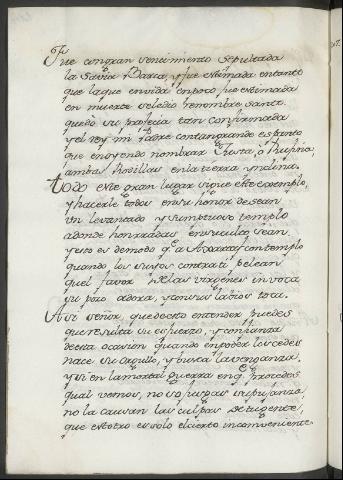 Fue con gran sentimiento sepultada
la Santa Barca, y fue estimada en tanto
que la que en vida en poco fue estimada
en muerte se le dio renombre santo.
quedó su profecia tan confirmada
y el rey mi Padre con tan grande espanto
que en oyendo nombrar Justa, o Rufina,
ambas rodillas en la tierra ynclina.
Todo este gran lugar sigue este exemplo,
y hacerle todos en su honor desean
un levantado y sumptuoso templo
adonde honrradas en su culto sean.
y esto es de modo q.e a Apartas contemplo
quando los suyos contra ti pelean
quel favor de las virgenes invoca
su pozo adora, y con sus labios toca.
Asi señor, que desto entender puedes
que resulta su esfuerzo, y confianza
desta ocasion quando en poder los cedes
nace su orgullo, y busca la venganza.
y si en la mortal guerra en q.e procedes
qual vemos, no usurpas su pujanza,
no la causan las culpas de tu gente,
que estotro es solo el cierto inconveniente